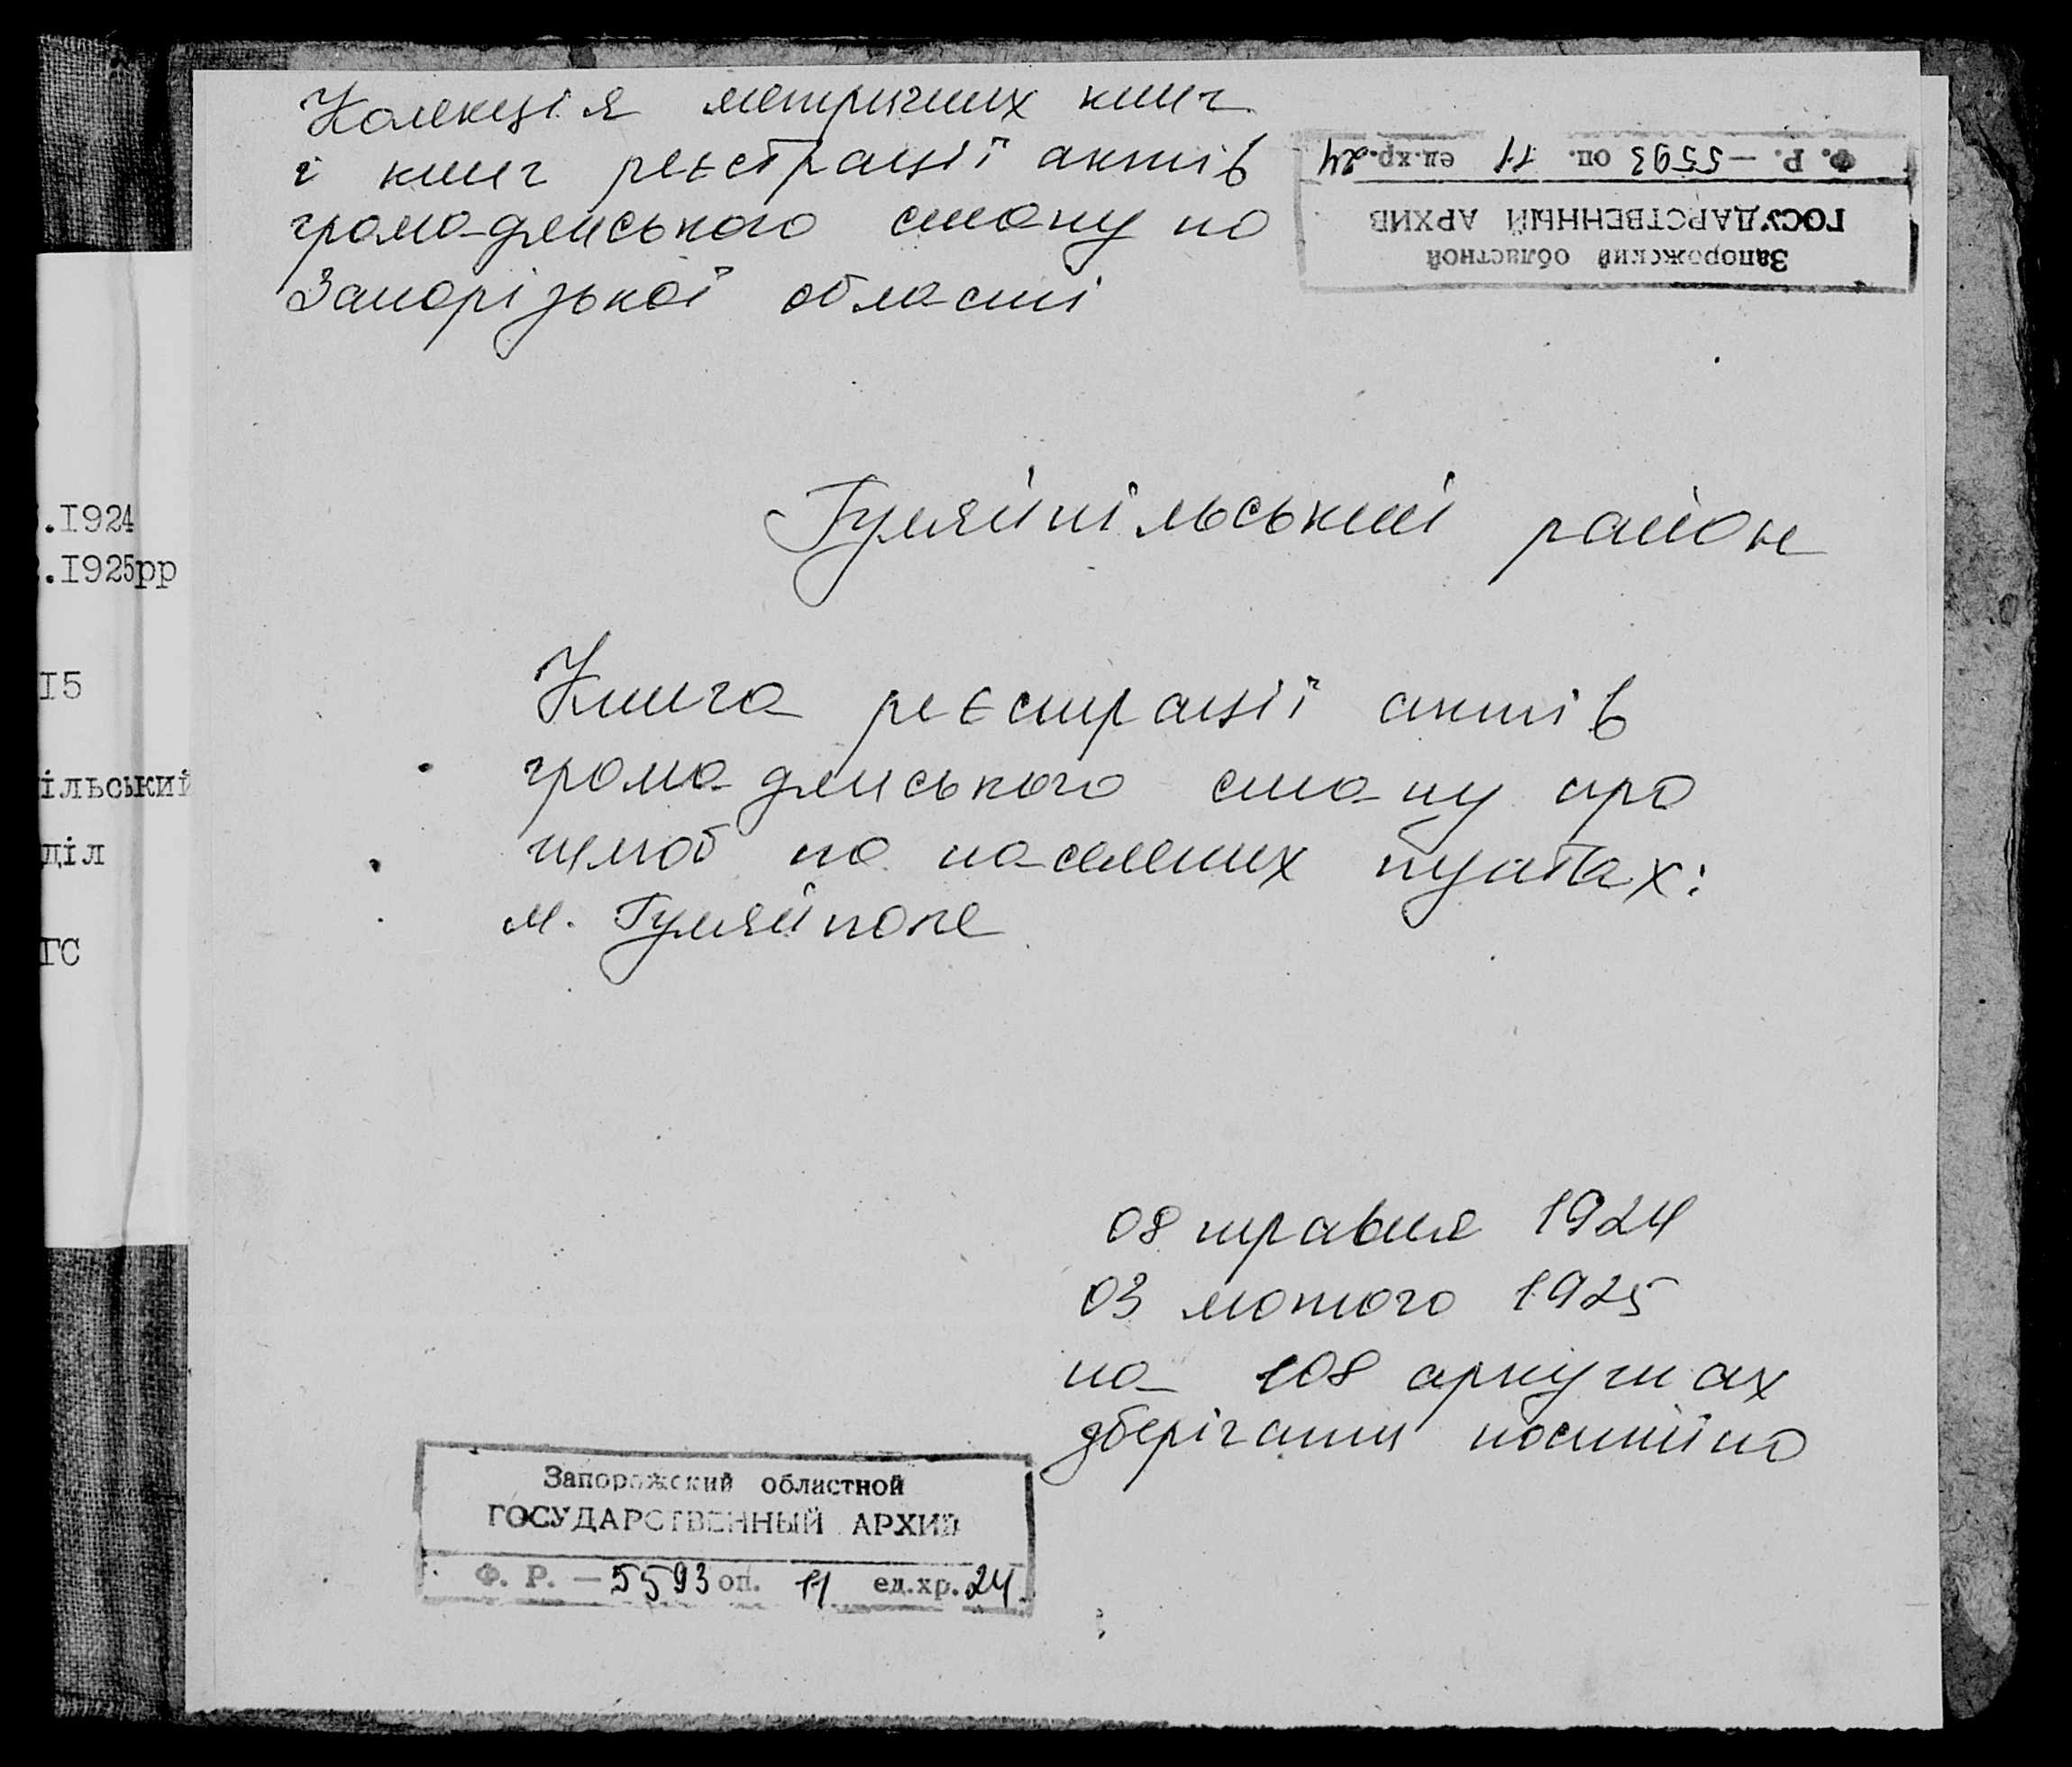 Колекція метричних книг
і книг реєстрації актів
громадянського стану по
Запорізької області
Ф. Р. — 5593 оп. 11 ед.хр. 24
ГОСУДАРСТВЕННЫЙ АРХИВ
Запорожский областной
Гуляйпільський район
.I924
.I925рр
I5
ільський
діл
ГС
Книга реєстрації актів
громадянського стану про
шлюб по населених пунктах:
м. Гуляйполе
08 травня 1924
03 лютого 1925
на 108 аркушах
зберігання постійно
Запорожский областной
ГОСУДАРСТВЕННЫЙ АРХИВ
Ф. Р. — 5593 оп. 11 ед.хр. 24